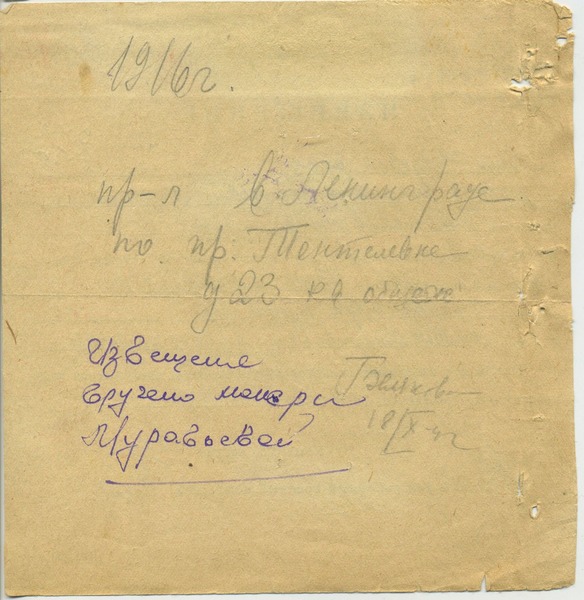 1916 г.
пр-л в Ленинграде
по пр. Тентелевке
д 23 кв
Извещение
вручено матери
Муравьевой
18/IX-